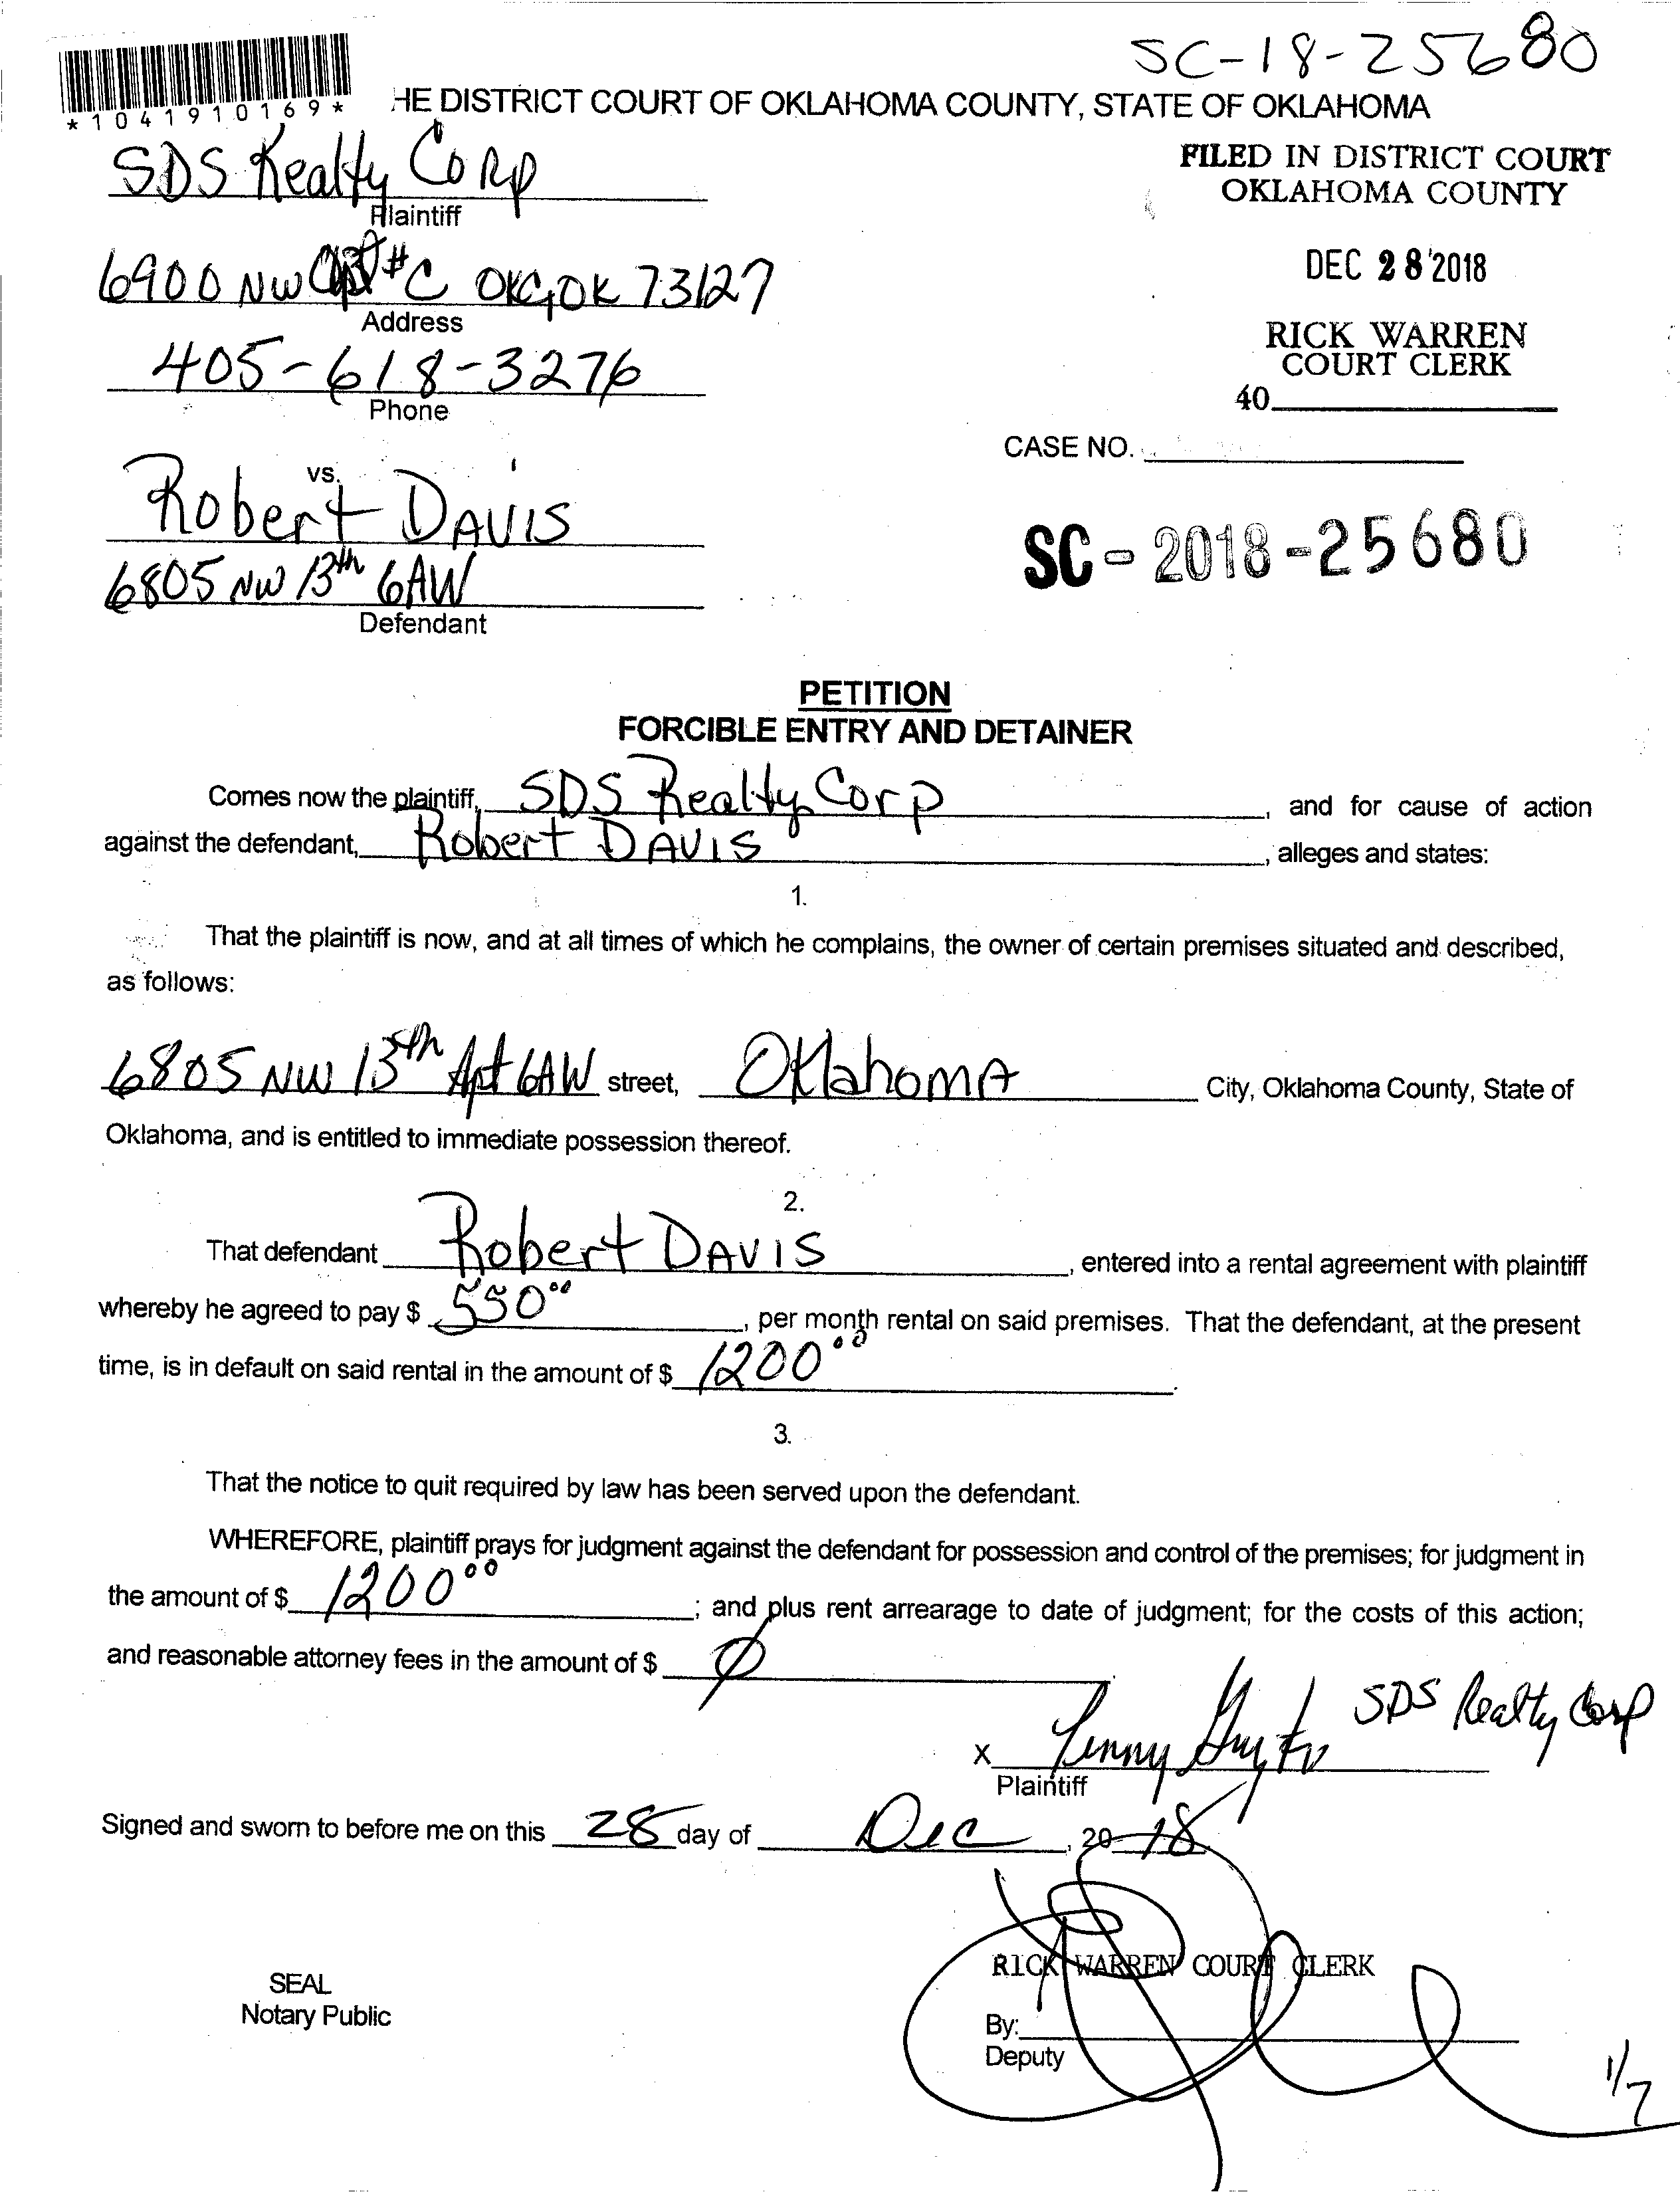 SC-18-25680
*1041910169*
HE DISTRICT COURT OF OKLAHOMA COUNTY, STATE OF OKLAHOMA
SDS Realty Corp
Plaintiff
FILED IN DISTRICT COURT
OKLAHOMA COUNTY
6900 NW #C OKC, OK 73127
Address
DEC 28 2018
405-618-3276
Phone
RICK WARREN
COURT CLERK
40
CASE NO.
vs.
Robert DAVIS
6805 NW 13th 6AW
Defendant
SC-2018-25680
PETITION
FORCIBLE ENTRY AND DETAINER
Comes now the plaintiff, SDS Realty Corp, and for cause of action
against the defendant, Robert DAVIS, alleges and states:
1.
That the plaintiff is now, and at all times of which he complains, the owner of certain premises situated and described,
as follows:
6805 NW 13th Apt 6AW street, OklahomA City, Oklahoma County, State of
Oklahoma, and is entitled to immediate possession thereof.
2.
That defendant Robert DAVIS, entered into a rental agreement with plaintiff
whereby he agreed to pay $ 550 00, per month rental on said premises. That the defendant, at the present
time, is in default on said rental in the amount of $ 1200 00.
3.
That the notice to quit required by law has been served upon the defendant.
WHEREFORE, plaintiff prays for judgment against the defendant for possession and control of the premises; for judgment in
the amount of $ 1200 00; and plus rent arrearage to date of judgment; for the costs of this action;
and reasonable attorney fees in the amount of $ Ø
X SDS Realty Corp
Plaintiff
Signed and sworn to before me on this 28 day of Dec, 20 18
RICK WARREN COURT CLERK
SEAL
Notary Public
By:
Deputy
1/7